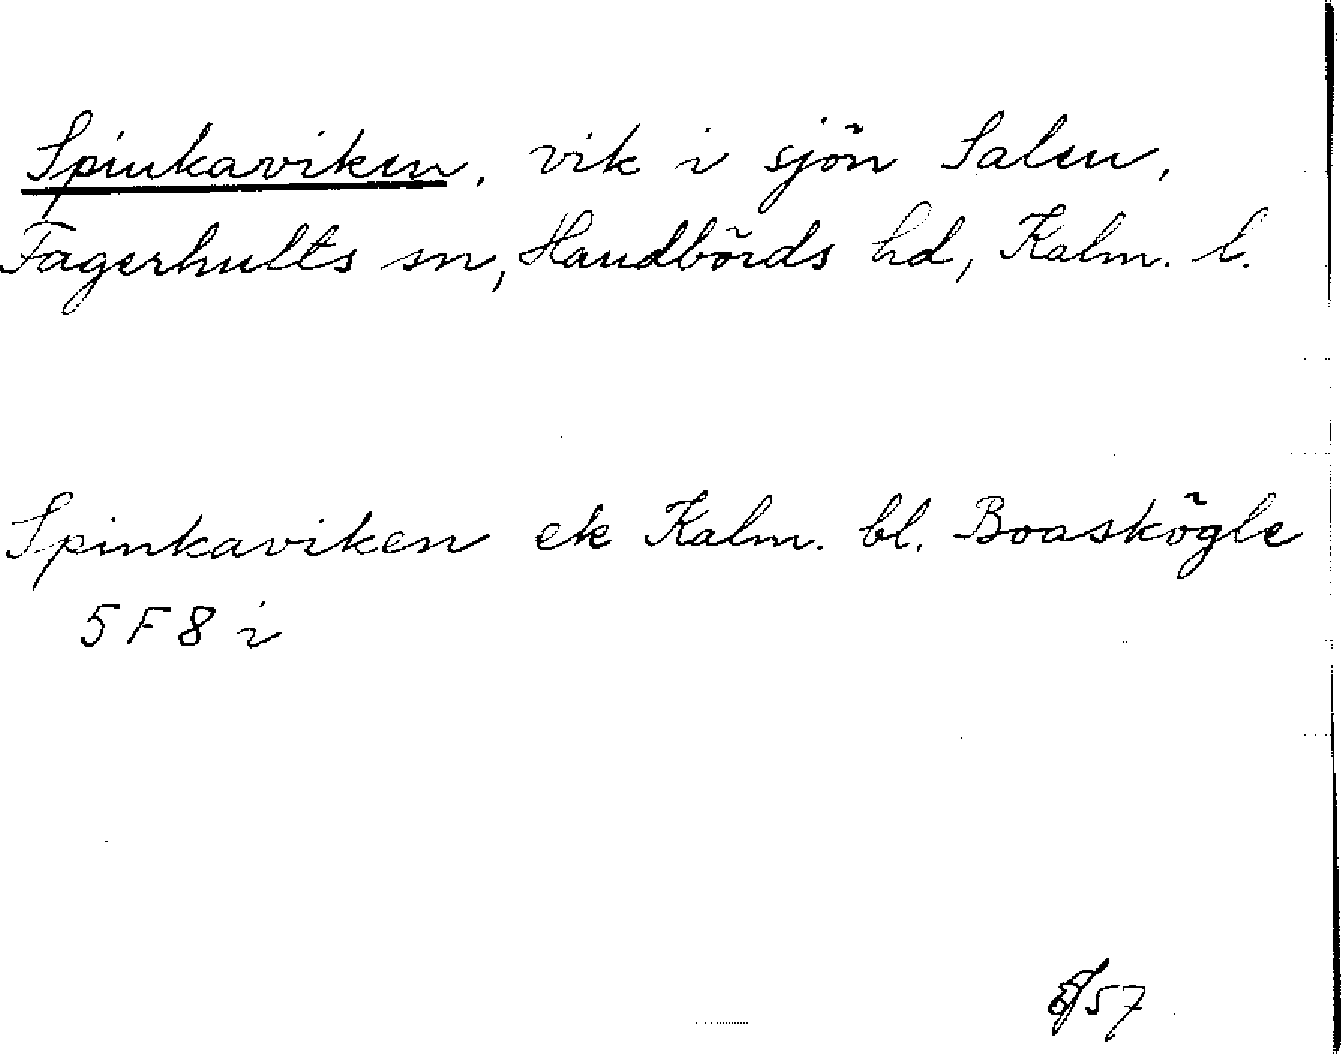 Spinkaviken, vik i sjön Salen,
Fagerhults sn, Handbörds hd, Kalm. l.
Spinkaviken ek Kalm. bl. Boaskögle
5 F 8 i
57